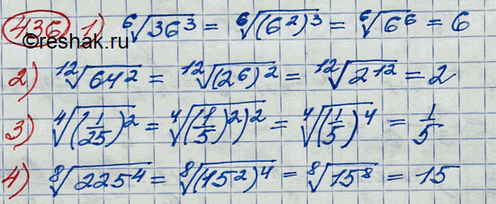 436 1) ⁶√36³ = ⁶√(6²)³ = ⁶√6⁶ = 6
©reshak.ru
2) ¹²√64² = ¹²√(2⁶)² = ¹²√2¹² = 2
3) ⁴√(1/25)² = ⁴√((1/5)²)² = ⁴√(1/5)⁴ = 1/5
4) ⁸√225⁴ = ⁸√(15²)⁴ = ⁸√15⁸ = 15